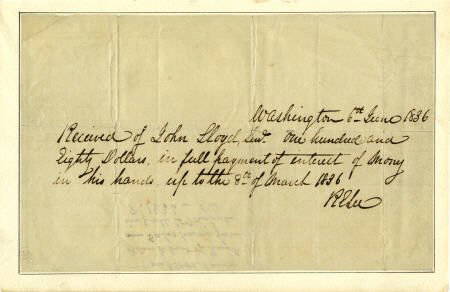 Washington 6th June 1836
Received of John Lloyd, One hundred and
Eighty Dollars, in full payment of interest of Money
in his hands, up to the 8th of March 1836
RELee